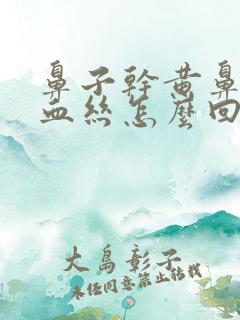 鼻子幹黄鼻
血絲怎麼回
大島彰子
未经同意禁止转载